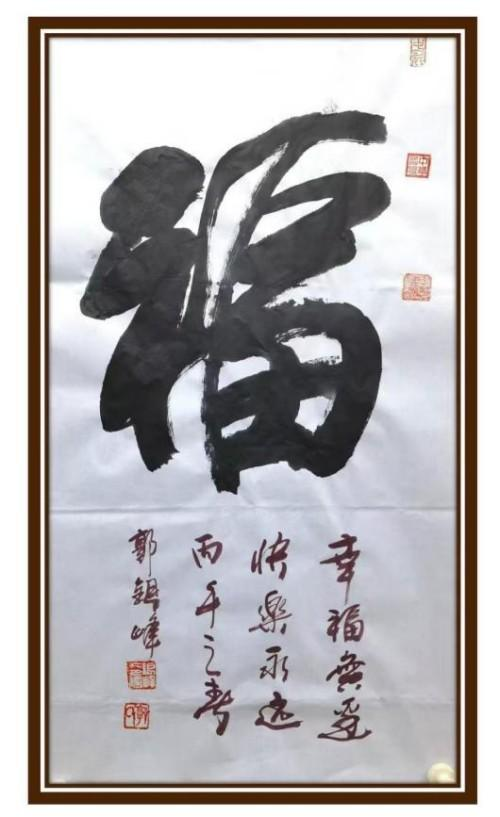 福
幸福無邊
快樂永遠
丙午之春
郭 峰